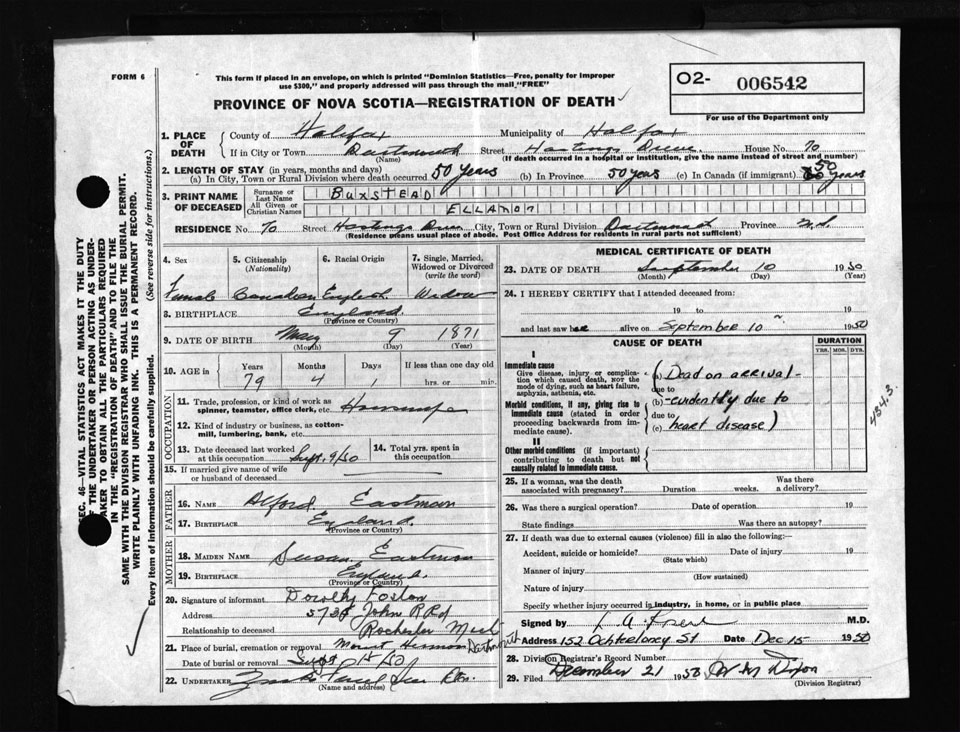 FORM 6
This form if placed in an envelope, on which is printed "Dominion Statistics—Free, penalty for improper
use $300," and properly addressed will pass through the mail "FREE"
O2- 006542
For use of the Department only
PROVINCE OF NOVA SCOTIA—REGISTRATION OF DEATH
1. PLACE OF DEATH
County of Halifax Municipality of Halifax
If in City or Town Dartmouth Street Hastings Drive House No. 70
(Name) (If death occurred in a hospital or institution, give the name instead of street and number)
2. LENGTH OF STAY (in years, months and days)
(a) In City, Town or Rural Division where death occurred 50 Years (b) In Province 50 years (c) In Canada (if immigrant) 50 years
3. PRINT NAME OF DECEASED
Surname or Last Name BUXSTEAD
All Given or Christian Names ELLANOR
RESIDENCE No. 70 Street Hastings Drive City, Town or Rural Division Dartmouth Province N.S.
(Residence means usual place of abode. Post Office Address for residents in rural parts not sufficient)
4. Sex
Female
5. Citizenship (Nationality)
Canadian
6. Racial Origin
English
7. Single, Married, Widowed or Divorced (write the word)
Widow
8. BIRTHPLACE England
(Province or Country)
9. DATE OF BIRTH May 9 1871
(Month) (Day) (Year)
10. AGE in Years Months Days If less than one day old
79 4 1 hrs. or min.
OCCUPATION
11. Trade, profession, or kind of work as
spinner, teamster, office clerk, etc. Housewife
12. Kind of industry or business, as cotton-
mill, lumbering, bank, etc.
13. Date deceased last worked at this occupation Sept. 9/50
14. Total yrs. spent in this occupation
15. If married give name of wife
or husband of deceased
FATHER
16. NAME Alford Eastman
17. BIRTHPLACE England.
(Province or Country)
MOTHER
18. MAIDEN NAME Susan Eastman
19. BIRTHPLACE England.
(Province or Country)
20. Signature of informant Dorothy
Address John R Rd
Relationship to deceased Rochester Mich
21. Place of burial, cremation or removal Mount Hermon Dartmouth
Date of burial or removal Sept 15/50
22. UNDERTAKER
(Name and address)
MEDICAL CERTIFICATE OF DEATH
23. DATE OF DEATH September 10 1950
(Month) (Day)
24. I HEREBY CERTIFY that I attended deceased from
19 to 19
and last saw her alive on September 10 1950
CAUSE OF DEATH
DURATION
YRS. MOS. DYS.
I
Immediate cause
Give disease, injury or complica-
tion which caused death, NOT the
mode of dying, such as heart failure,
asphyxia, asthenia, etc.
(Dead on arrival-
due to
Morbid conditions, if any, giving rise to
immediate cause (stated in order
proceeding backwards from im-
mediate cause).
(b) -evidently due to
due to
(c) heart disease)
434.3
II
Other morbid conditions (if important)
contributing to death but not
causally related to immediate cause.
25. If a woman, was the death
associated with pregnancy? Duration weeks. Was there a delivery?
26. Was there a surgical operation? Date of operation 19
State findings Was there an autopsy?
27. If death was due to external causes (violence) fill in also the following:—
Accident, suicide or homicide? Date of injury 19
(State which)
Manner of injury
(How sustained)
Nature of injury
Specify whether injury occurred in industry, in home, or in public place
Signed by M.D.
Address 152 Ochterloney St Date Dec 15 1950
28. Division Registrar's Record Number
29. Filed December 21 1950
(Division Registrar)
SEC. 46—VITAL STATISTICS ACT MAKES IT THE DUTY
OF THE UNDERTAKER OR PERSON ACTING AS UNDER-
TAKER TO OBTAIN ALL THE PARTICULARS REQUIRED
IN THE "REGISTRATION OF DEATH" AND TO FILE THE
SAME WITH THE DIVISION REGISTRAR WHO SHALL ISSUE THE BURIAL PERMIT.
WRITE PLAINLY WITH UNFADING INK. THIS IS A PERMANENT RECORD.
Every item of information should be carefully supplied. (See reverse side for instructions.)